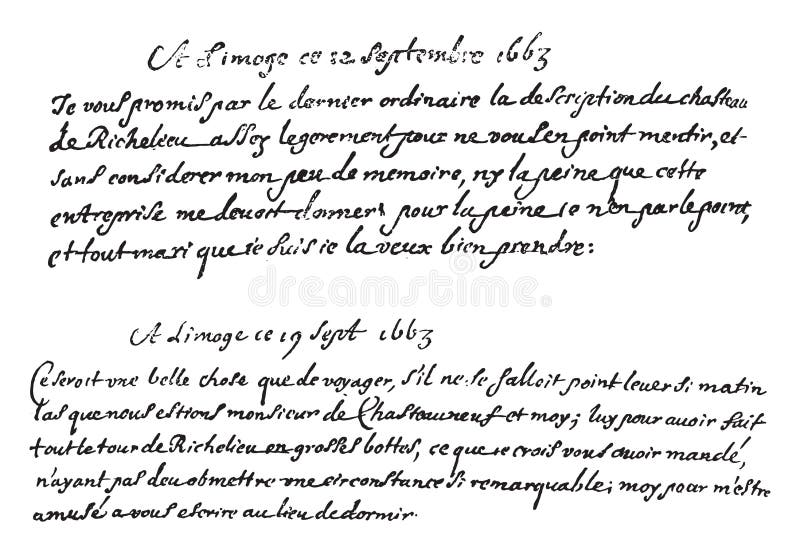 A Limoge ce 12 septembre 1663
Je vous promis par le dernier ordinaire la description du chasteau
de Richelieu assez legerement pour ne vous en point mentir, et
sans considerer mon peu de memoire, ny la peine que cette
entreprise me devoit donner; pour la peine ie n'en parle point,
et tout mari que ie suis ie la veux bien prendre:
A Limoge ce 19 sept 1663
Ce seroit vne belle chose que de voyager, s'il ne se falloit point leuer si matin
las que nous estions monsieur de Chasteauneuf et moy; luy pour auoir fait
tout le tour de Richelieu en grosses bottes, ce que ie crois vous auoir mandé,
n'ayant pas deu obmettre vne circonstance si remarquable; moy pour m'estre
amusé a vous escrire au lieu de dormir.
dreamstime